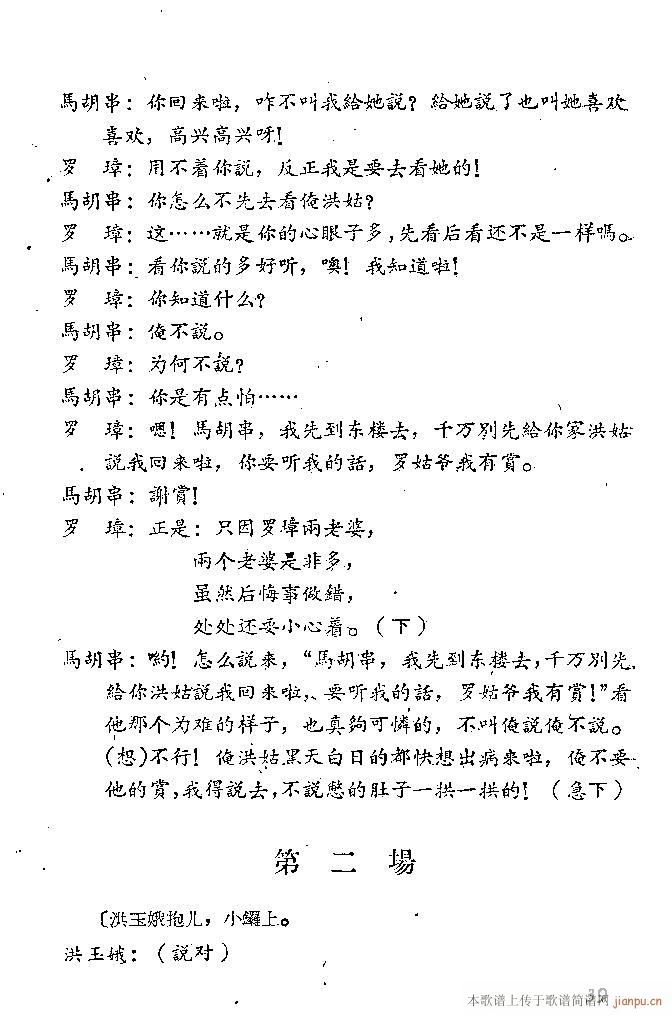 馬胡串：你回来啦，咋不叫我給她説？給她説了也叫她喜欢
喜欢，高兴高兴呀！
罗　璋：用不着你説，反正我是要去看她的！
馬胡串：你怎么不先去看俺洪姑？
罗　璋：这……就是你的心眼子多，先看后看还不是一样嗎。
馬胡串：看你説的多好听，噢！我知道啦！
罗　璋：你知道什么？
馬胡串：俺不説。
罗　璋：为何不説？
馬胡串：你是有点怕……
罗　璋：嗯！馬胡串，我先到东楼去，千万别先給你家洪姑
説我回来啦，你要听我的話，罗姑爷我有賞。
馬胡串：謝賞！
罗　璋：正是：只因罗璋兩老婆，
兩个老婆是非多，
虽然后悔事做錯，
处处还要小心着。（下）
馬胡串：喲！怎么説来，“馬胡串，我先到东楼去，千万别先
給你洪姑説我回来啦，、要听我的話，罗姑爷我有賞！”看
他那个为难的样子，也真夠可憐的，不叫俺説俺不説。
（想）不行！俺洪姑黑天白日的都快想出病来啦，俺不要
他的賞，我得説去，不説憋的肚子一拱一拱的！（急下）
第二場
〔洪玉娥抱儿，小鑼上。
洪玉娥：（説对）
39
本歌谱上传于歌谱简谱网
jianpu.cn